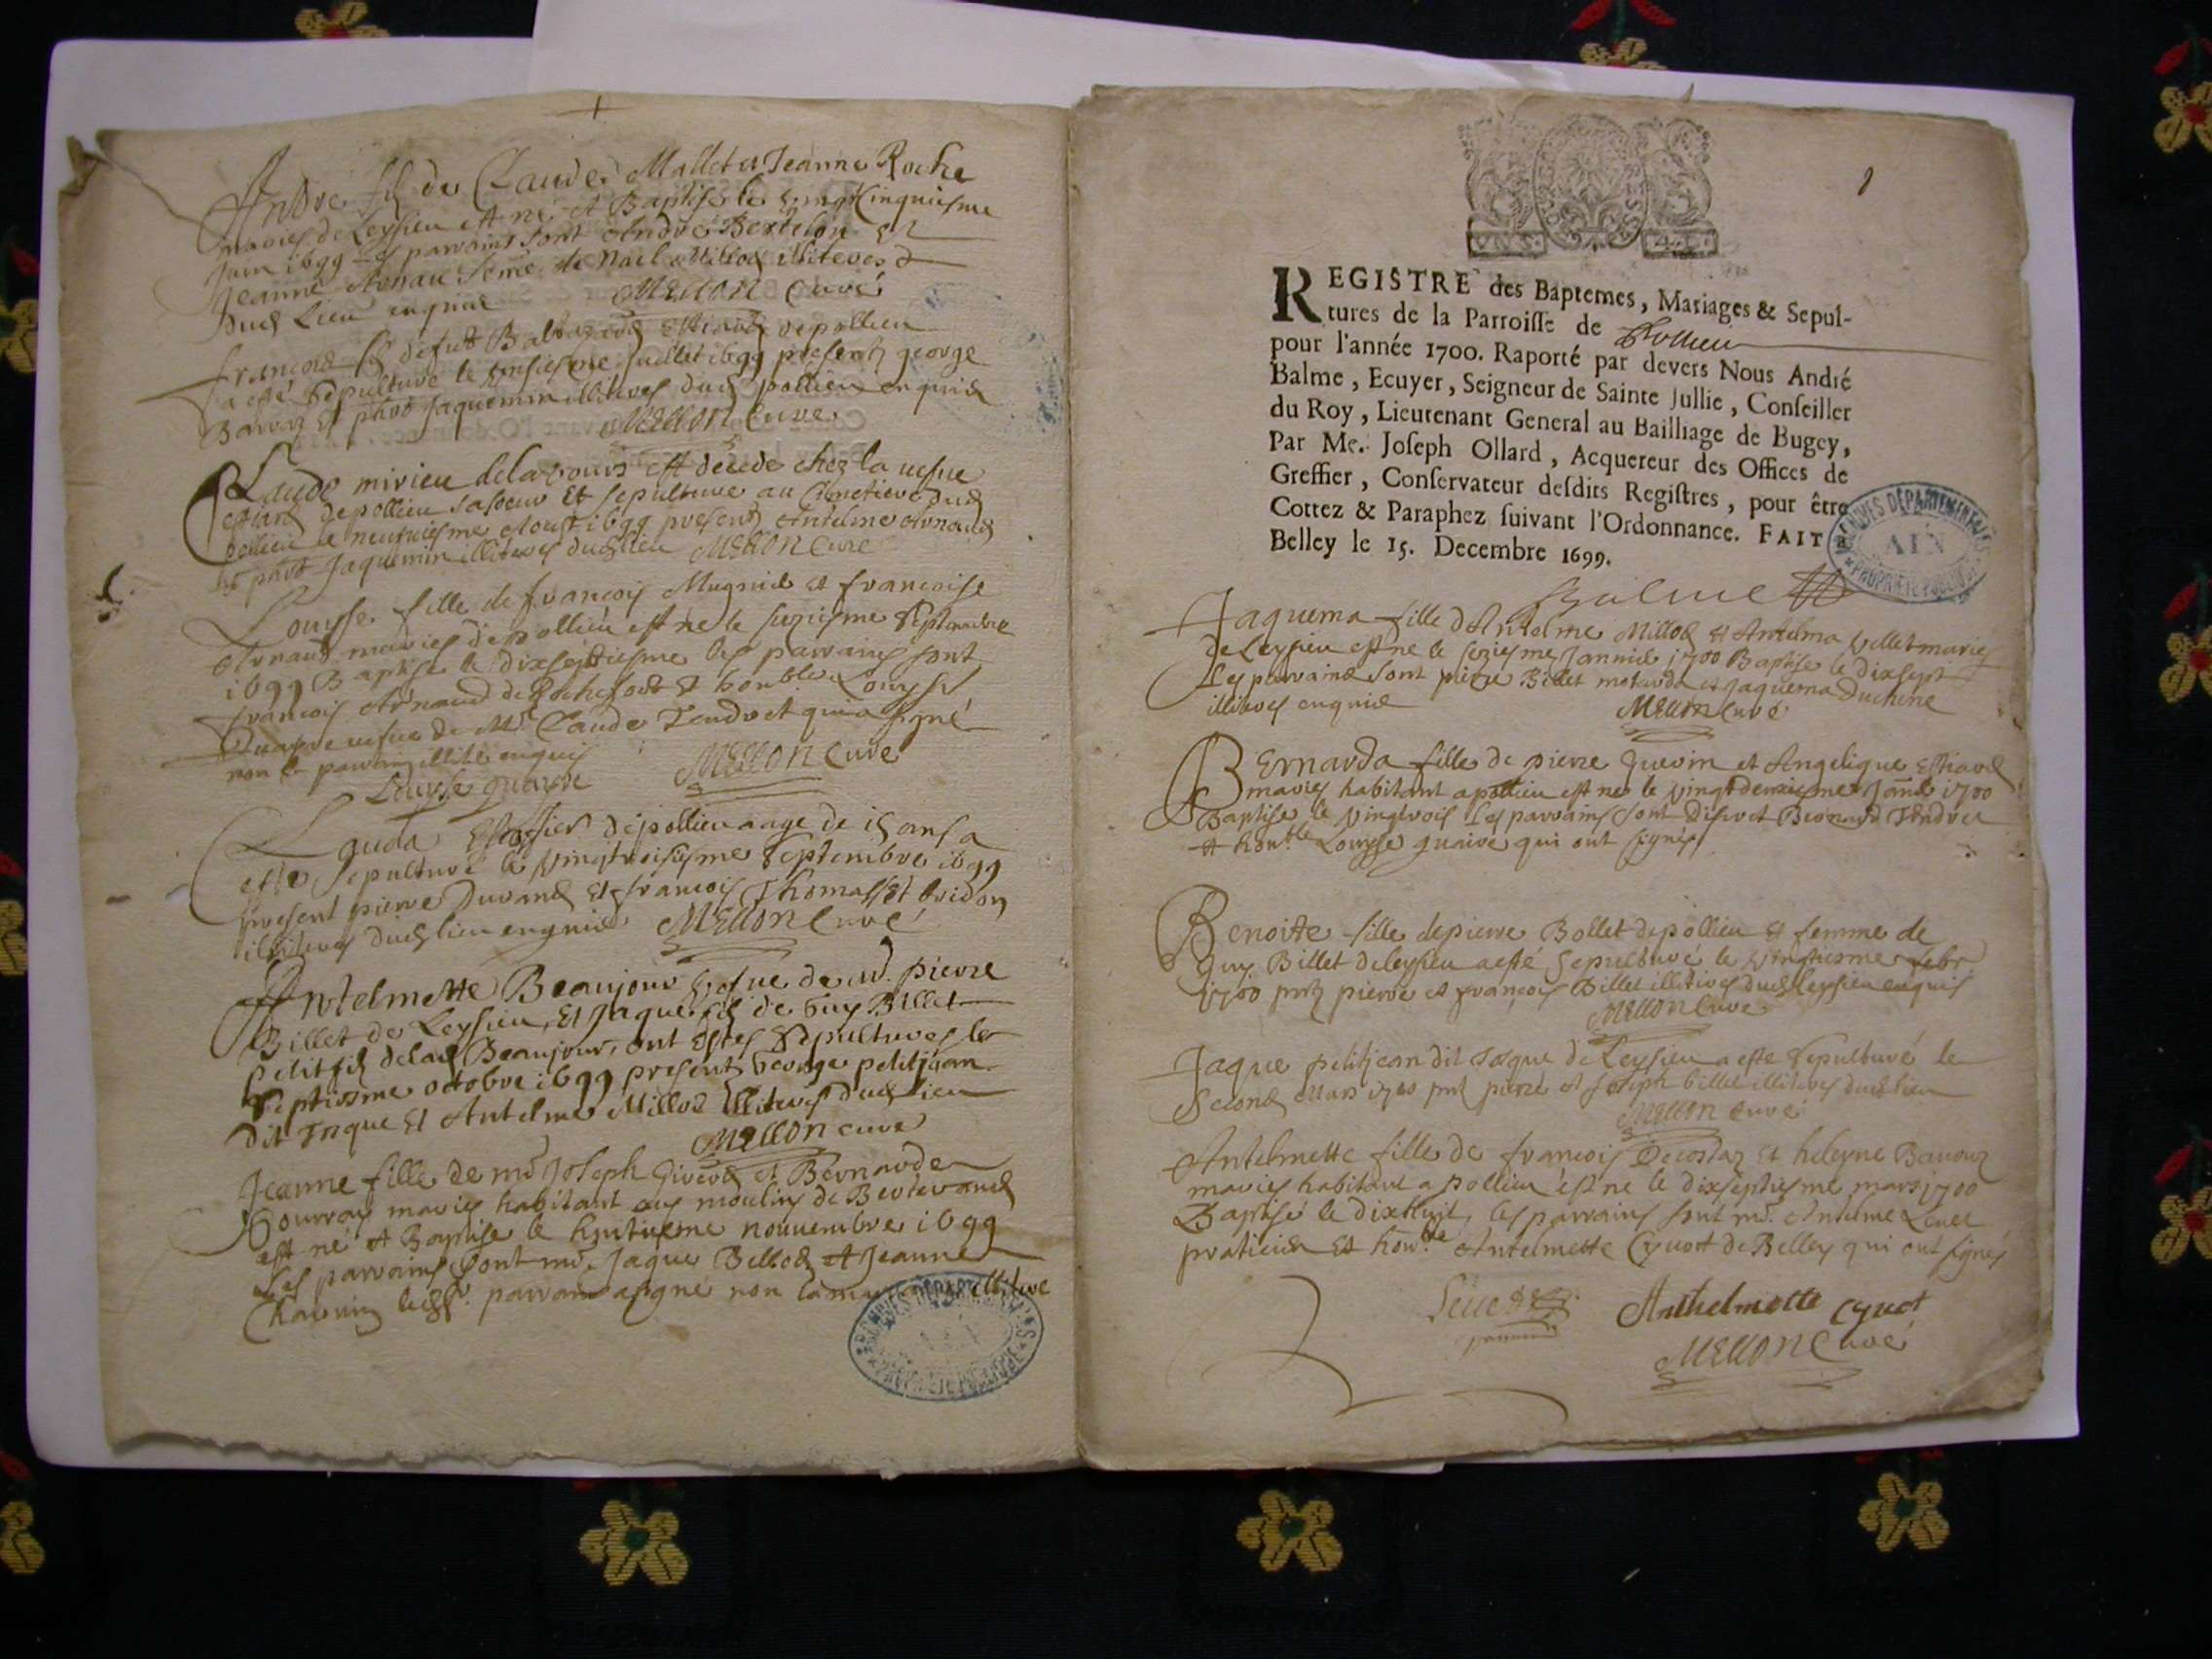 Andre fils de Claude Mallet et Jeanne Roche
maries de Leysieu est né et Baptisé le vingtcinquiesme
Juin 1699 les parrains sont Andre Bertelon Et
Jeanne Arnau feme de Millod illiteres
dud Lieu enquis MELLON Curé
francois fils de fut Baltazard Estiard de pollieu
a esté sepulturé le Juillet 1699 presents george
Et Jaquemin illiteres dud pollieu enquis
MELLON Curé
Claude mirieu est decede chez la vefve
Estiard de pollieu sa soeur Et sepulturé au Cimetiere dud
pollieu le neufviesme Aoust 1699 presents Antelme Arnaud
Et Jaquemin illiteres dud lieu MELLON Curé
Louyse fille de francois Mugnié et francoise
Arnaud maries de pollieu est né le seziesme Septembre
1699 Baptisé le dixseptiesme les parrains sont
francois Arnaud de Rochefort Et honble Louyse
Quaire vefve de Mr Claude Tendret qui a signé
non le parrain illité enquis
Louyse quaire MELLON Curé
Claude de pollieu aage de 15 ans a
esté sepulturé le vingtroisiesme Septembre 1699
present pierre Durand Et francois Thomasset bridon
illiteres dud lieu enquis MELLON Curé
Antelmette Beaujour vefve de pierre
Billet de Leysieu, Et Jaque fils de Guy Billet
petit fils de lad Beaujour, ont estes sepultures le
septiesme octobre 1699 presents George petitjean
dit Jnque Et Antelme Millod illiteres dud lieu
MELLON curé
Jeanne fille de mr Joseph Girerd et Bernarde
maries habitant aux moulins de
est né et Baptisé le huitiesme nouvembre 1699
Les parrains sont mr Jaque Bellod et Jeanne
parrain a signé non la illitere
REGISTRE des Baptemes, Mariages & Sepul-
tures de la Parroisse de Pollieu
pour l'année 1700. Raporté par devers Nous André
Balme, Ecuyer, Seigneur de Sainte Jullie, Conseiller
du Roy, Lieutenant General au Bailliage de Bugey,
Par Me. Joseph Ollard, Acquereur des Offices de
Greffier, Conservateur desdits Registres, pour être
Cottez & Paraphez suivant l'Ordonnance. FAIT à
Belley le 15. Decembre 1699.
ARCHIVES DÉPARTEMENTALES
AIN
PROPRIÉTÉ PUBLIQUE
Balme
Jaquema fille d'Antelme Millod et Antelma Vellet maries
de Leysieu est né le seziesme Janvié 1700 Baptisé le dixsept
Les parrains sont pierre Billet et Jaquema Duchene
illiteres enquis MELLON Curé
BErnarda fille de pierre Guerin et Angelique Estiard
maries habitant a pollieu est né le vingtdeuxiesme Janvié 1700
Baptisé le vingtrois Les parrains sont Discret Bernard Tendret
et honble Louyse quaire qui ont signés
Benoite fille de pierre Bollet de pollieu et femme de
Guy Billet de leysieu a esté sepulturé le vingtiesme febr
1700 pnts pierre et francois Billet illiteres dud Leysieu enquis
MELLON Curé
Jaque petitjean dit Jnque de Leysieu a esté sepulturé le
Second Mars 1700 pnts pierre et Joseph billet illiteres dud lieu
MELLON Curé
Antelmette fille de francois Decostaz Et heleyne
maries habitant a pollieu est né le dixseptiesme mars 1700
Baptisé le dixhuit, les parrains sont mr. Antelme
praticien Et honble Antelmette Cyuot de Belley qui ont signés
Anthelmette cyuot
MELLON Curé